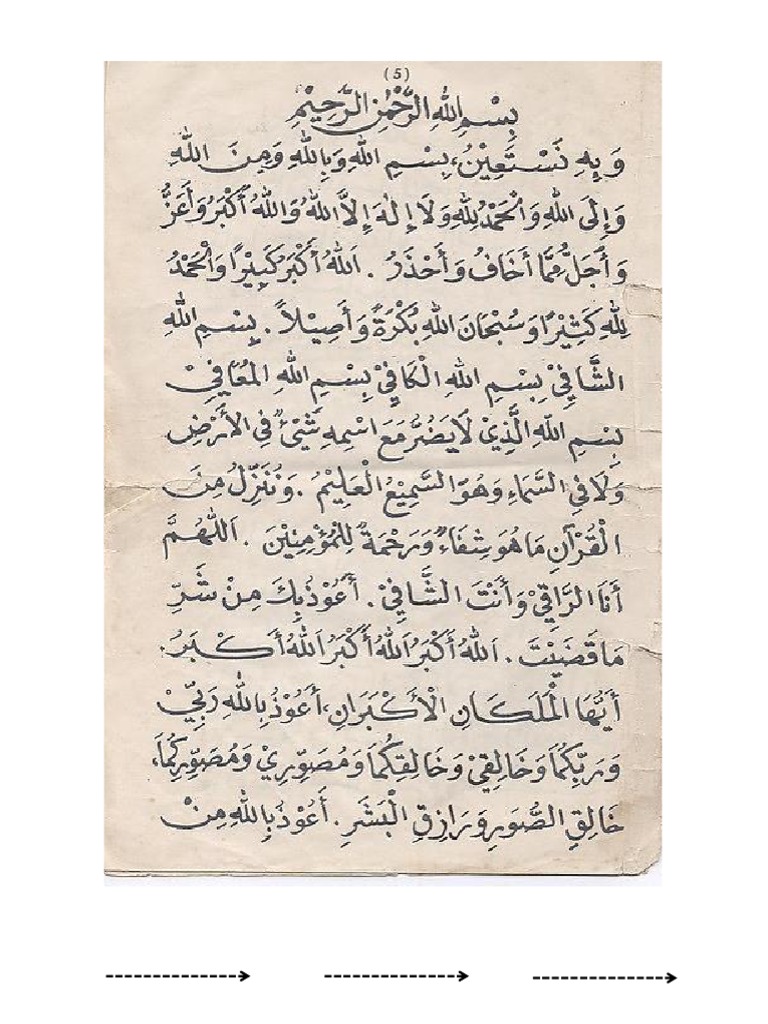 (5)
بِسْمِ اللهِ الرَّحْمٰنِ الرَّحِيْمِ
وَ بِهِ نَسْتَعِيْنُ، بِسْمِ اللهِ وَبِاللهِ وَمِنَ اللهِ
وَإِلَى اللهِ وَالْحَمْدُ لِلّٰهِ وَلَا إِلٰهَ إِلَّا اللهُ وَاللهُ أَكْبَرُ وَأَعَزُّ
وَأَجَلُّ مِمَّا أَخَافُ وَأَحْذَرُ . اَللهُ أَكْبَرُ كَبِيْرًا وَالْحَمْدُ
لِلّٰهِ كَثِيْرًا وَسُبْحَانَ اللهِ بُكْرَةً وَأَصِيْلاً . بِسْمِ اللهِ
الشَّافِيْ بِسْمِ اللهِ الْكَافِيْ بِسْمِ اللهِ الْمُعَافِيْ
بِسْمِ اللهِ الَّذِيْ لَا يَضُرُّ مَعَ اسْمِهِ شَيْئٌ فِي الْأَرْضِ
وَلَا فِي السَّمَاءِ وَهُوَ السَّمِيْعُ الْعَلِيْمُ . وَنُنَزِّلُ مِنَ
الْقُرْآنِ مَا هُوَ شِفَاءٌ وَرَحْمَةٌ لِلْمُؤْمِنِيْنَ . اَللّٰهُمَّ
أَنَا الرَّاقِيْ وَأَنْتَ الشَّافِيْ . أَعُوْذُ بِكَ مِنْ شَرِّ
مَا قَضَيْتَ . اَللهُ أَكْبَرُ اَللهُ أَكْبَرُ اَللهُ أَكْبَرُ .
أَيُّهَا الْمَلَكَانِ الْأَكْبَرَانِ، أَعُوْذُ بِاللهِ رَبِّيْ
وَرَبِّكُمَا وَخَالِقِيْ وَخَالِقِكُمَا وَمُصَوِّرِيْ وَمُصَوِّرِكُمَا،
خَالِقِ الصُّوَرِ وَرَازِقِ الْبَشَرِ . أَعُوْذُ بِاللهِ مِنْ